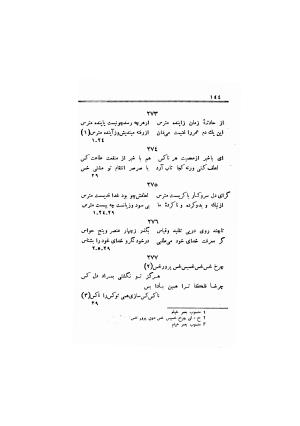 ۱۴۴
۲۷۳
از حادثهٔ زمان زاینده مترس   از هرچه رسد چو نیست پاینده مترس
این یک دم عمر را غنیمت میدان   از رفته میندیش وز آینده مترس (۱)
۱.۲۴
۲۷۴
ای باخبر از معصیت هر ناکس   هم با خبر از منفعت طاعت کس
لطف کنی ورنه کجا تاب آرد   با صرصر انتقام تو مشتی خس
۲۹
۲۷۵
گر ای دل سر و کار با کریمست مترس   لطفش چو بود خدا
از نیک و بد و کرده و ناکردهٔ ما   بی سود و زیانست چه بیمست مترس
۱.۲۴.۲۹
۲۷۶
تا چند روی در پی تقلید و قیاس   بگذر ز چهار عنصر و پنج حواس
گر معرفت خدای خود میطلبی   در خود نگر و خدای خود را بشناس
۲.۵.۲۹
۲۷۷
چرخ خس خس خسیس خس پرور خس (۲)
هرگز تو نگشتی بمراد دل کس
چرخا فلکا ترا همین بادا بس
ناکس کس سازی همی تو کس را ناکس (۳)
۲۹
۱ منسوب بعمر خیام
۲ خ ، ای چرخ خسیس خس دون پرور خس
۳ منسوب بعمر خیام